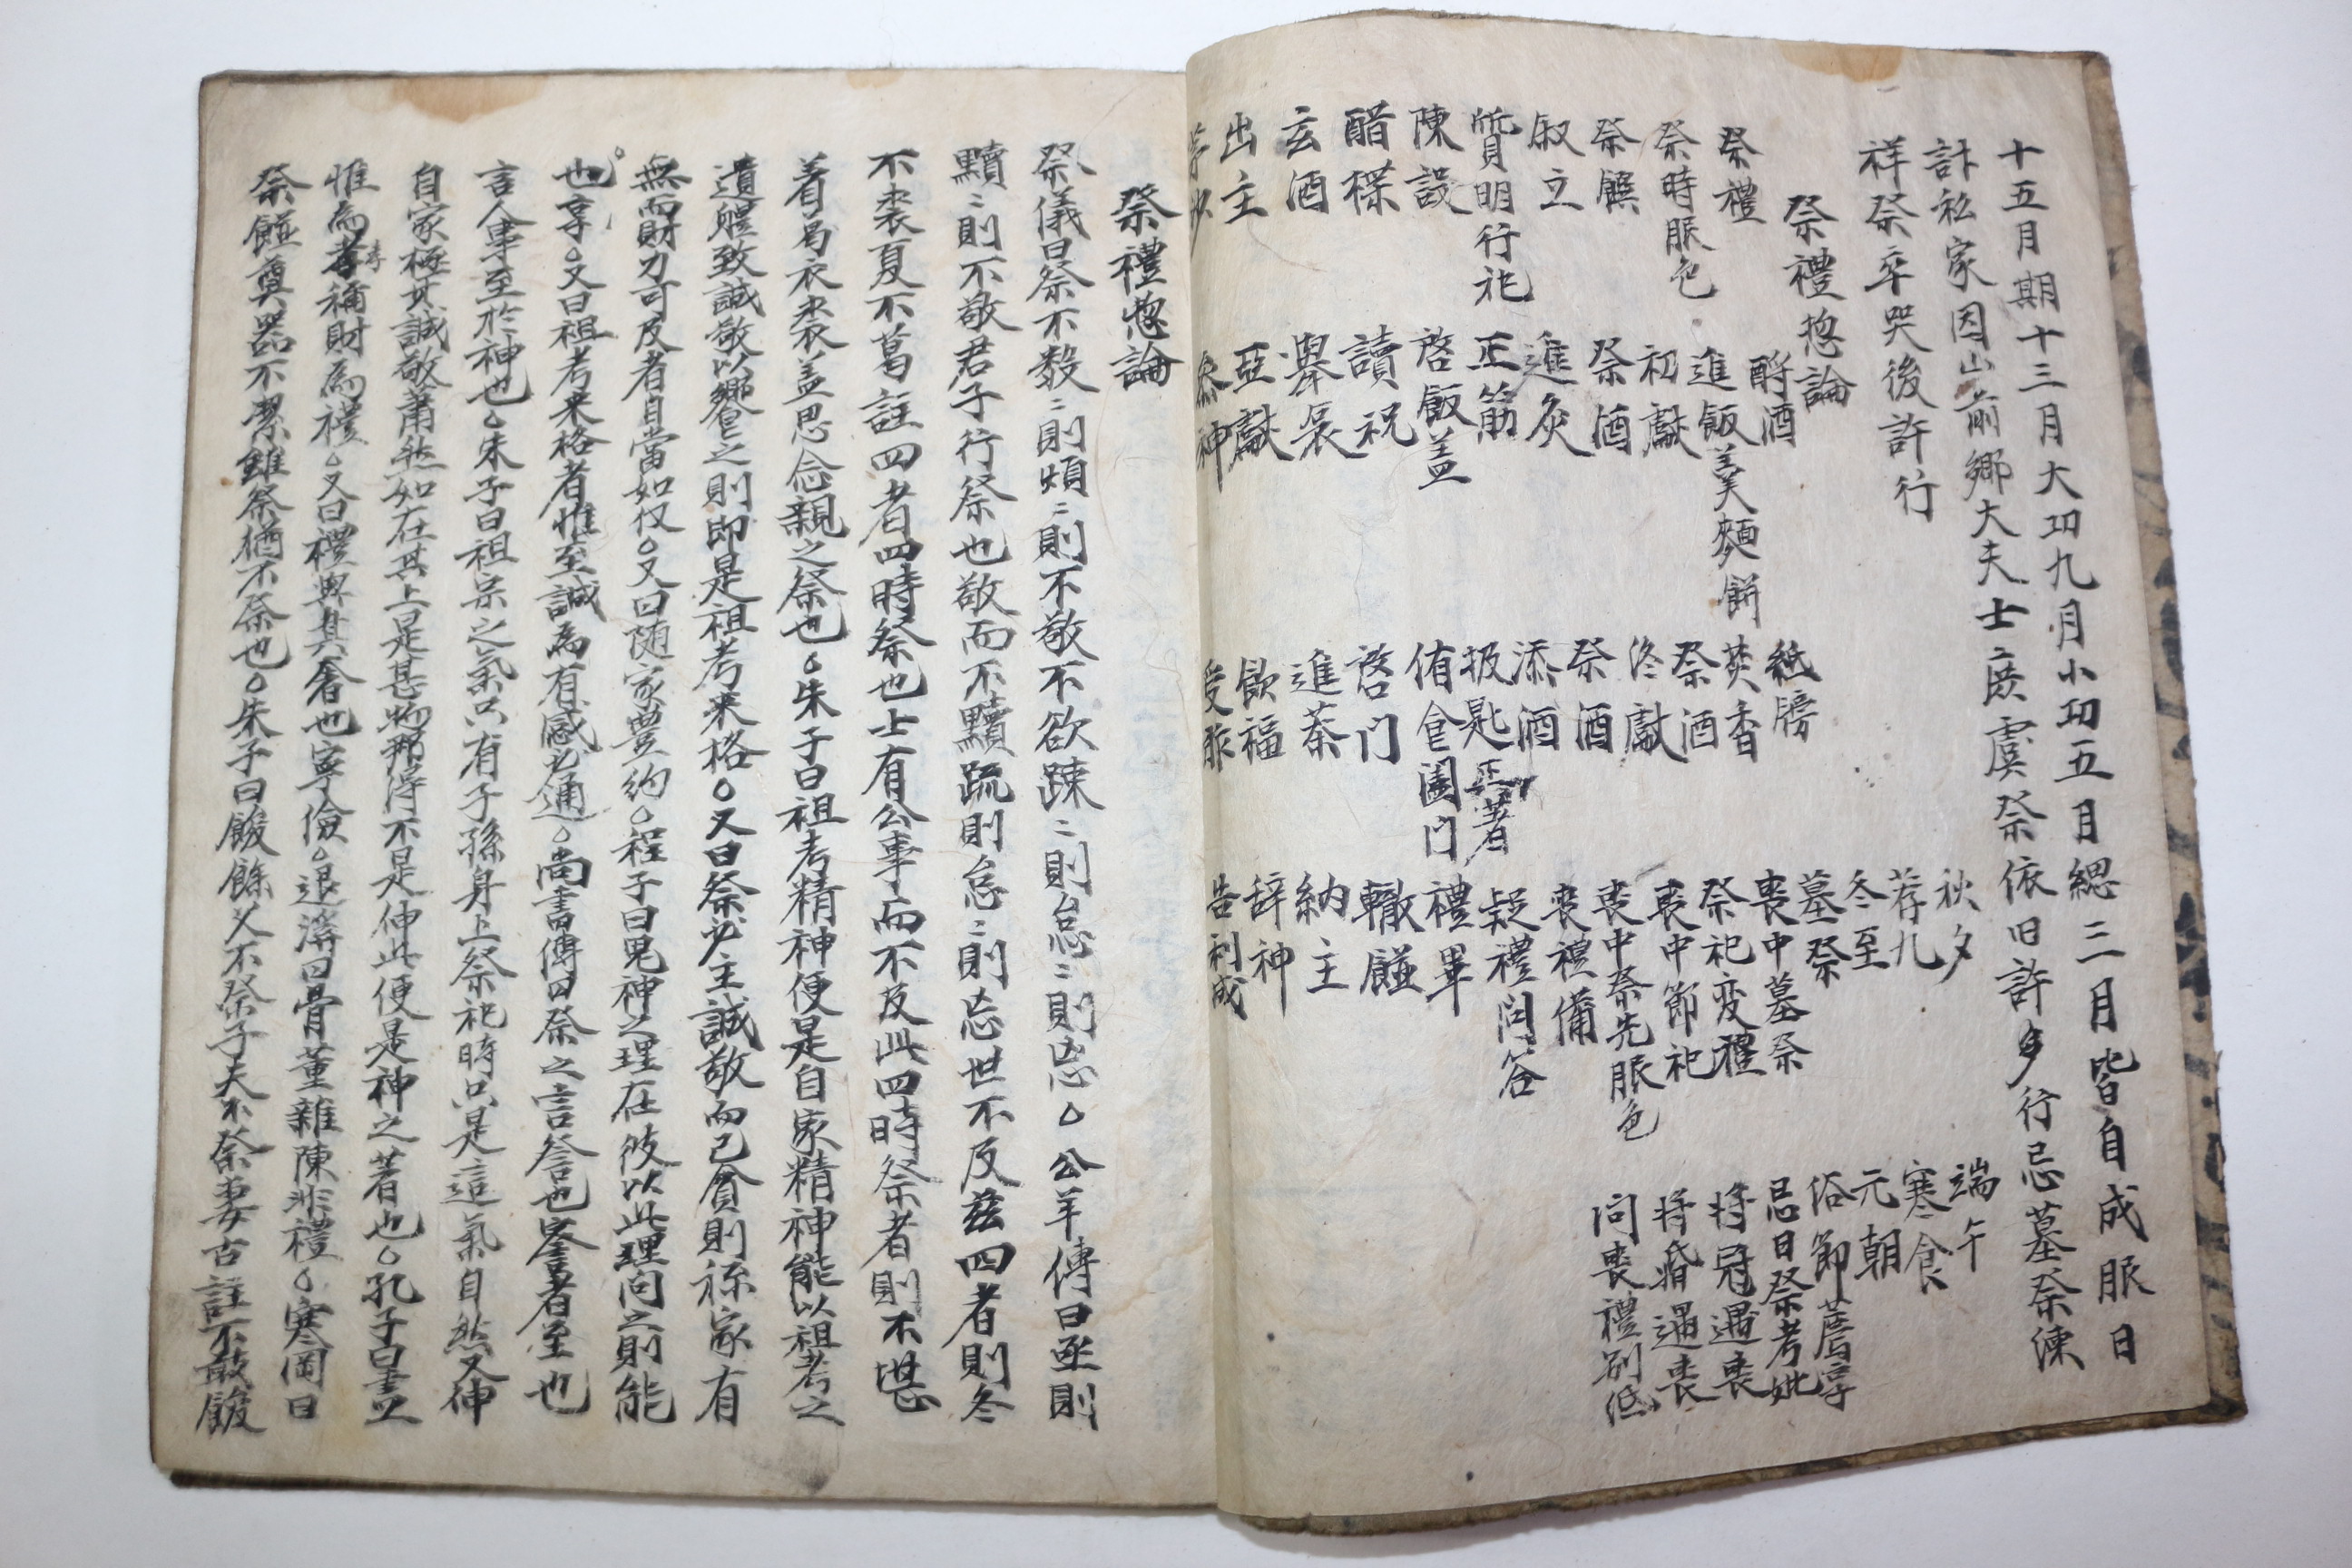 十五月期十三月大功九月小功五月緦三月皆自成服日
計私家因山前鄉大夫士庶虞祭依旧許多行忌墓祭練
祥祭卒哭後許行
祭禮惣論
祭禮
祭時服色
祭饌
叙立
質明行祀
陳設
醋楪
玄酒
出主
酹酒
進飯羹麵餅
初獻
祭酒
進炙
正筯
啓飯盖
讀祝
舉哀
亞獻
叅神
紙牓
焚香
祭酒
終獻
祭酒
添酒
扱匙正著
侑食闔门
啓门
進茶
飮福
受胙
秋夕
荐九
冬至
墓祭
喪中墓祭
祭祀变禮
喪中節祀
喪中祭先服色
喪禮備
疑禮问答
禮畢
轍饈
納主
辞神
告利成
端午
寒食
元朝
俗節薦享
忌日祭考妣
將冠遇喪
將婚遇喪
问喪禮別紙
祭禮惣論
祭儀曰祭不數〻則煩〻則不敬不欲踈〻則怠〻則忘○公羊傳曰亟則
黷〻則不敬君子行祭也敬而不黷疏則怠〻則忘世不及玆四者則冬
不裘夏不葛註四者四時祭也士有公事而不及此四時祭者則不堪
着局衣裘盖思念親之祭也○朱子曰祖考精神便是自家精神能以祖考之
遺軆致誠敬以饗之則即是祖考来格○又曰祭必主誠敬而已貧則称家有
無而財力可反者自當如仪○又曰随家豊約○程子曰鬼神之理在彼以此理向之則能
也享○又曰祖考来格者惟至誠為有感必通○尚書傳曰祭之言詧也詧者至也
言人事至於神也○朱子曰祖宗之氣只有子孫身上祭祀時只是這氣自然又伸
自家極其誠敬蕭然如在其上是甚物那得不是伸此便是神之著也○孔子曰盡
惟為孝稱財為禮○又曰禮與其奢也寧儉○退溪曰骨董雜陳非禮○寒岡曰
祭饈奠器不潔雖祭猶不祭也○朱子曰餕餘父不祭子夫不祭妻古註不敢餕